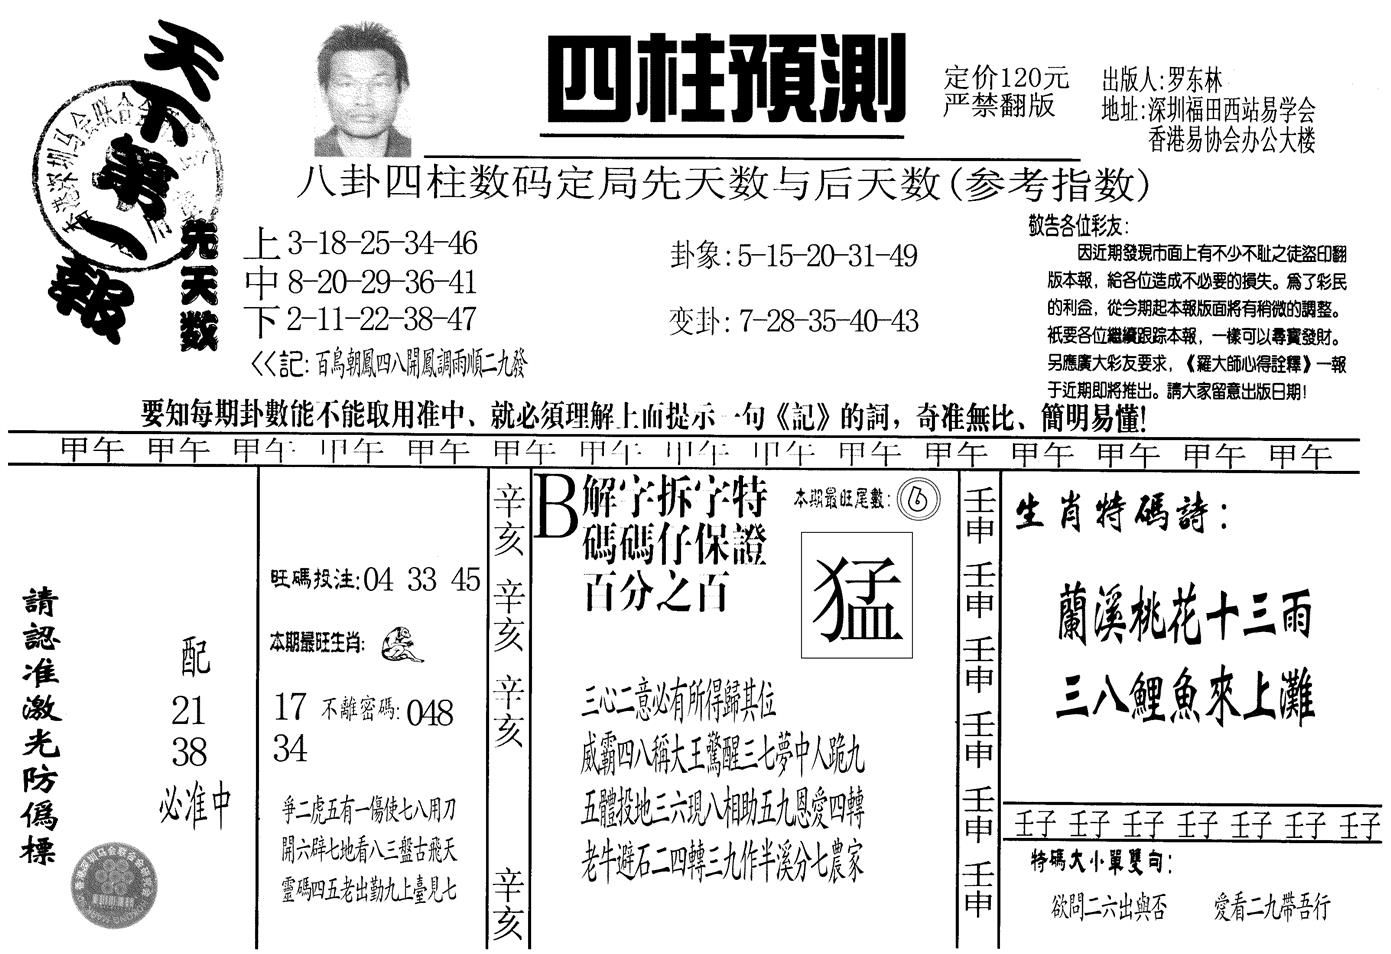 天下第一報
四柱預測
定价120元
严禁翻版
出版人:罗东林
地址:深圳福田西站易学会
香港易协会办公大楼
八卦四柱数码定局先天数与后天数(参考指数)
先天数
上 3-18-25-34-46
中 8-20-29-36-41
下 2-11-22-38-47
<<記: 百鳥朝鳳四八開鳳調雨順二九發
卦象: 5-15-20-31-49
变卦: 7-28-35-40-43
敬告各位彩友:
因近期發現市面上有不少不耻之徒盜印翻
版本報，給各位造成不必要的損失。爲了彩民
的利益，從今期起本報版面將有稍微的調整。
衹要各位繼續跟踪本報，一樣可以尋寶發財。
另應廣大彩友要求，《羅大師心得詮釋》一報
于近期即將推出。請大家留意出版日期!
要知每期卦數能不能取用准中、就必須理解上面提示一句《記》的詞，奇准無比、簡明易懂!
甲午 甲午 甲午 甲午 甲午 甲午 甲午 甲午 甲午 甲午 甲午 甲午 甲午 甲午 甲午
請認准激光防僞標
配
21
38
必准中
旺碼投注:04 33 45
本期最旺生肖:
17 不離密碼: 048
34
爭二虎五有一傷使七八用刀
開六辟七地看八三盤古飛天
靈碼四五老出勤九上臺見七
辛亥 辛亥 辛亥 辛亥
B 解字拆字特
碼碼仔保證
百分之百
本期最旺尾數: 6
猛
三心二意必有所得歸其位
威霸四八稱大王驚醒三七夢中人跪九
五體投地三六現八相助五九恩愛四轉
老牛避石二四轉三九作半溪分七農家
壬申 壬申 壬申 壬申 壬申 壬申
生肖特碼詩:
蘭溪桃花十三雨
三八鯉魚來上灘
壬子 壬子 壬子 壬子 壬子 壬子 壬子
特碼大小單雙句:
欲問二六出與否 愛看二九帶吾行